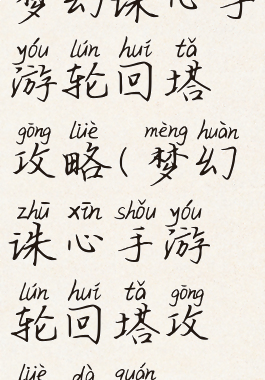 梦幻诛心手
yóu lún huí tǎ
游轮回塔
gōng lüè mèng huàn
攻略(梦幻
zhū xīn shǒu yóu
诛心手游
lún huí tǎ gōng
轮回塔攻
lüè dà quán